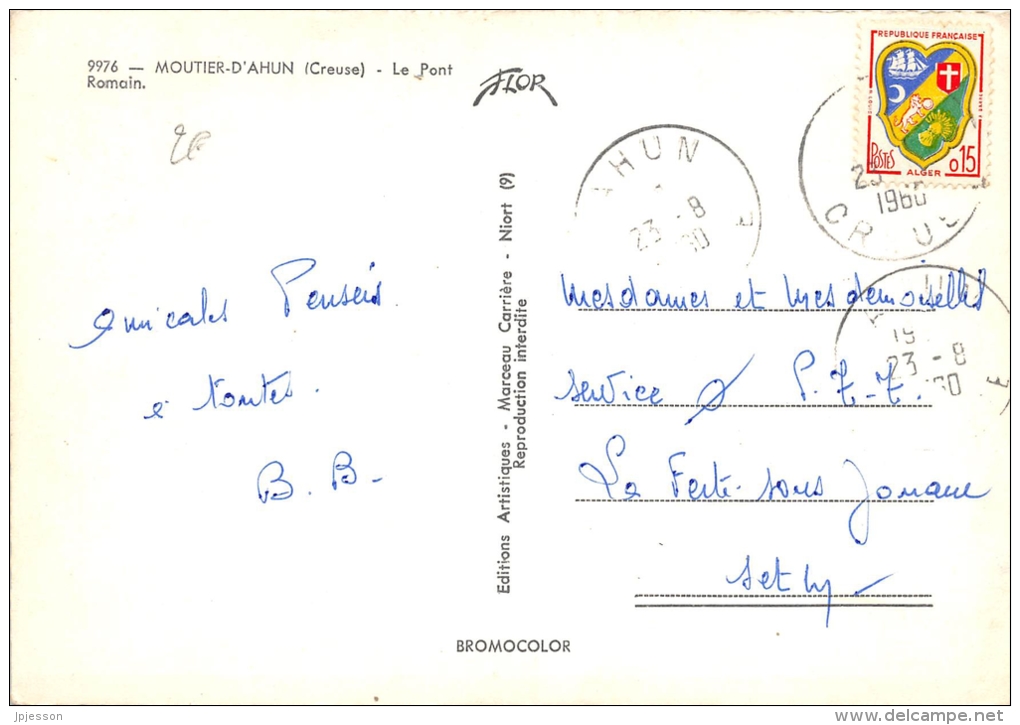 9976 — MOUTIER-D'AHUN (Creuse) - Le Pont
Romain.
FLOR
REPUBLIQUE FRANÇAISE
POSTES
ALGER
0,15
AHUN
23 -8
60
23
1960
CR USE
19
23 -8
60
E
Amicales Pensées
à toutes.
B. B-
Editions Artistiques - Marceau Carrière - Niort (9)
Reproduction interdite
Mesdames et Mesdemoiselles
service P.T.T.
La Ferté-sous Jouarre
Set M
BROMOCOLOR
jpjesson
www.delcampe.net